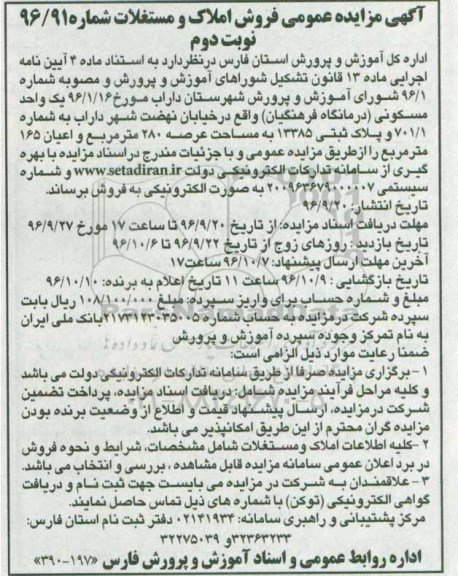 آگهی مزایده عمومی فروش املاک و مستغلات شماره ۹۶/۹۱
نوبت دوم
اداره کل آموزش و پرورش استان فارس در نظر دارد به استناد ماده ۴ آیین نامه
اجرایی ماده ۱۳ قانون تشکیل شوراهای آموزش و پرورش و مصوبه شماره
۹۶/۱ شورای آموزش و پرورش شهرستان داراب مورخ ۹۶/۱/۱۶ یک واحد
مسکونی (درمانگاه فرهنگیان) واقع در خیابان نهضت شهر داراب به شماره
۷۰۱/۱ و پلاک ثبتی ۱۳۳۸۵ به مساحت عرصه ۲۸۰ مترمربع و اعیان ۱۶۵
مترمربع را از طریق مزایده عمومی و با جزئیات مندرج در اسناد مزایده با بهره
گیری از سامانه تدارکات الکترونیکی دولت www.setadiran.ir و شماره
سیستمی ۲۰۰۹۶۳۶۷۹۰۰۰۰۰۷ به صورت الکترونیکی به فروش برساند.
تاریخ انتشار: ۹۶/۹/۲۰
مهلت دریافت اسناد مزایده: از تاریخ ۹۶/۹/۲۰ تا ساعت ۱۷ مورخ ۹۶/۹/۲۷
تاریخ بازدید: روزهای زوج از تاریخ ۹۶/۹/۲۲ تا ۹۶/۱۰/۶
آخرین مهلت ارسال پیشنهاد: ۹۶/۱۰/۷ ساعت ۱۷
تاریخ بازگشایی: ۹۶/۱۰/۹ ساعت ۱۱ تاریخ اعلام به برنده: ۹۶/۱۰/۱۰
مبلغ و شماره حساب برای واریز سپرده: مبلغ ۱۰۸/۱۰۰/۰۰۰ ریال بابت
سپرده شرکت در مزایده به حساب شماره ۲۱۷۳۹۲۳۰۳۵۰۰۵ بانک ملی ایران
به نام تمرکز وجوه سپرده آموزش و پرورش
ضمنا رعایت موارد ذیل الزامی است:
۱- برگزاری مزایده صرفا از طریق سامانه تدارکات الکترونیکی دولت می باشد
و کلیه مراحل فرآیند مزایده شامل دریافت اسناد مزایده، پرداخت تضمین
شرکت در مزایده، ارسال پیشنهاد قیمت و اطلاع از وضعیت برنده بودن
مزایده گران محترم از این طریق امکانپذیر می باشد.
۲- کلیه اطلاعات املاک و مستغلات شامل مشخصات، شرایط و نحوه فروش
در برد اعلان عمومی سامانه مزایده قابل مشاهده، بررسی و انتخاب می باشد.
۳- علاقمندان به شرکت در مزایده می بایست جهت ثبت نام و دریافت
گواهی الکترونیکی (توکن) با شماره های ذیل تماس حاصل نمایند.
مرکز پشتیبانی و راهبری سامانه: ۰۲۱۴۱۹۳۴ دفتر ثبت نام استان فارس:
۳۲۳۶۳۲۳۳ و ۳۲۲۷۵۰۳۹
اداره روابط عمومی و اسناد آموزش و پرورش فارس «۱۹۷-۳۹۰»